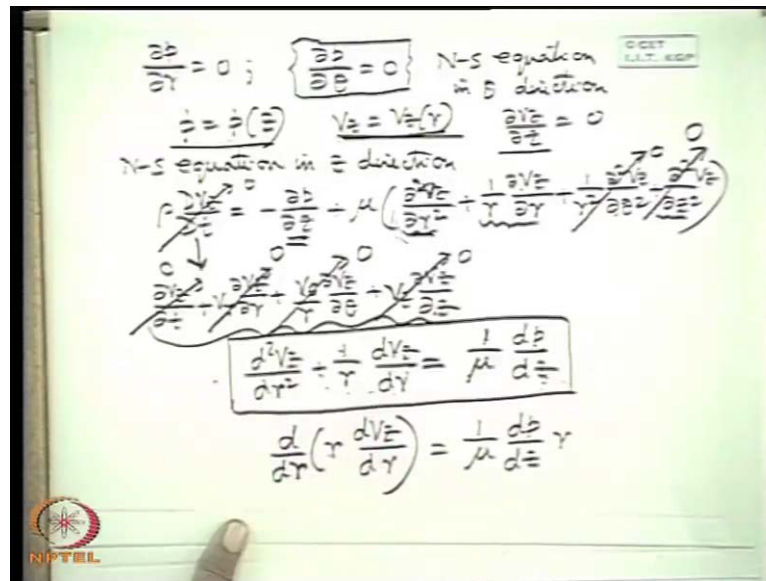 ∂p/∂r = 0 ; { ∂p/∂θ = 0 } N-S equation
in θ direction
C CET
I.I.T. KGP
p = p(z) Vz = Vz(r) ∂Vz/∂z = 0
N-S equation in z direction
ρ DVz/Dt 0 = - ∂p/∂z + μ ( ∂²Vz/∂r² + 1/r ∂Vz/∂r + 1/r² ∂²Vz/∂θ² 0 + ∂²Vz/∂z² 0 )
∂Vz/∂t 0 + Vr ∂Vz/∂r 0 + Vθ/r ∂Vz/∂θ 0 + Vz ∂Vz/∂z 0
d²Vz/dr² + 1/r dVz/dr = 1/μ dp/dz
d/dr ( r dVz/dr ) = 1/μ dp/dz r
NPTEL